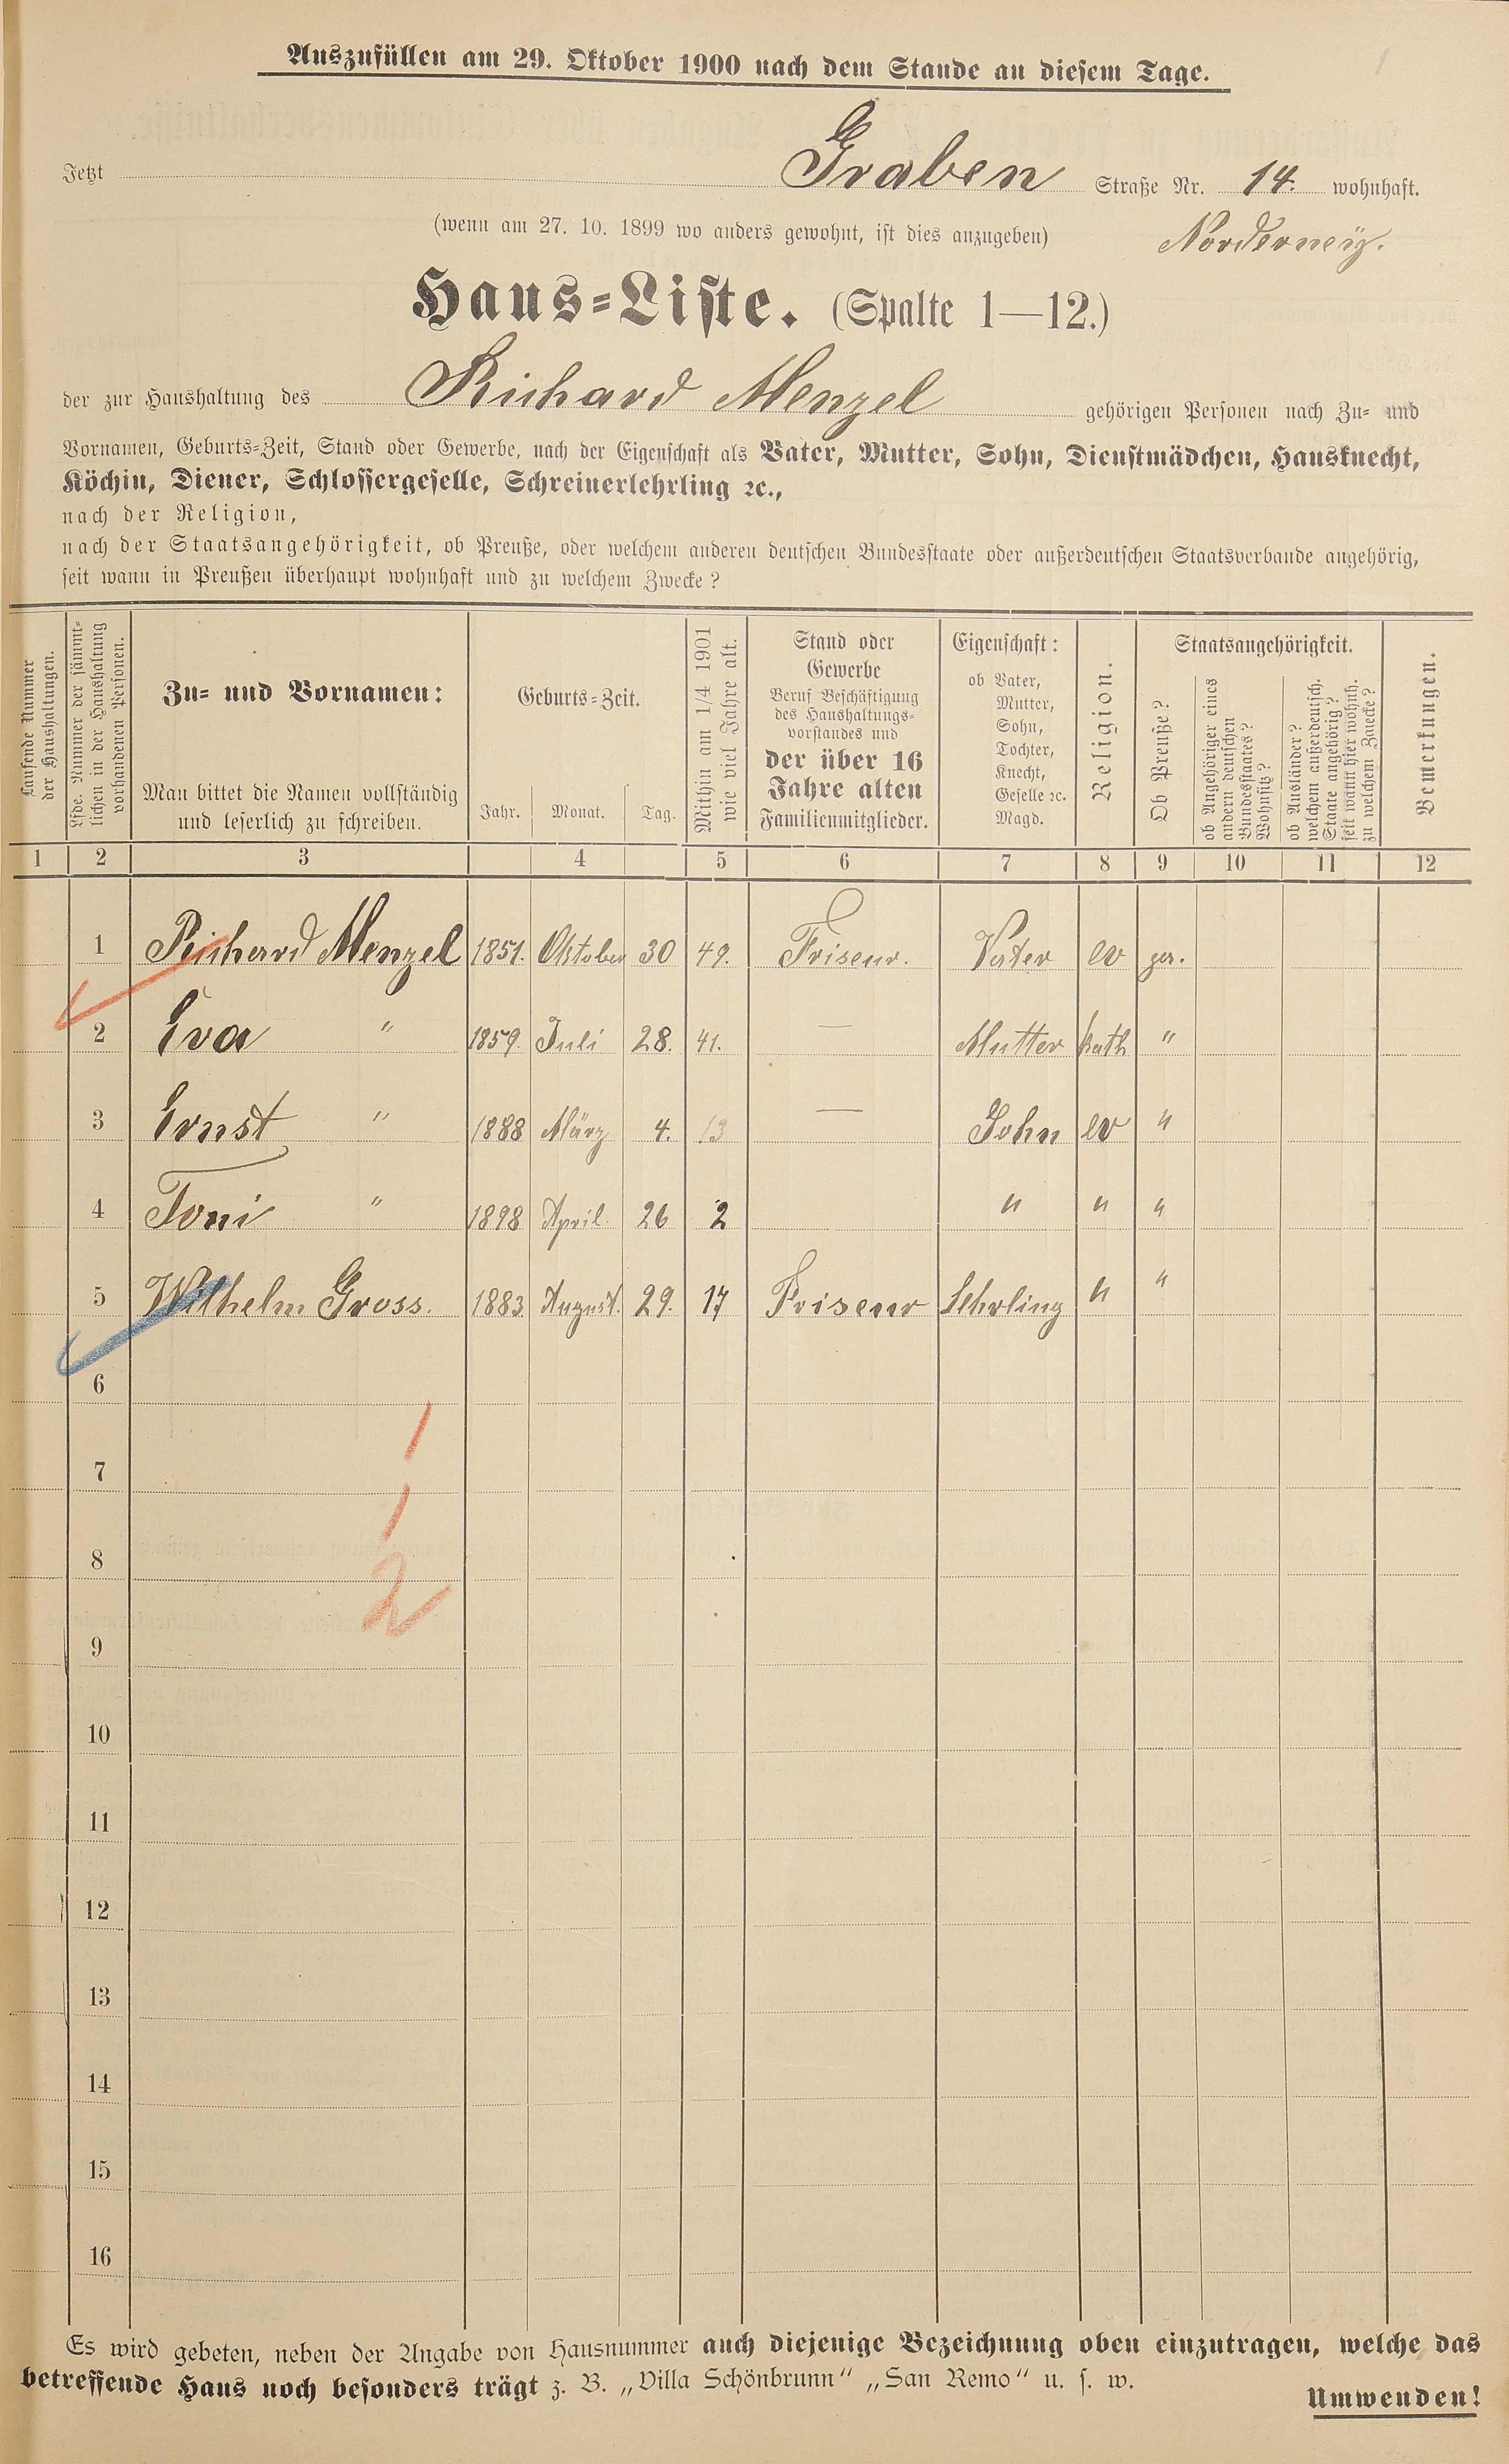 Auszufüllen am 29. Oktober 1900 nach dem Stande an diesem Tage.
Jetzt Graben Straße Nr. 14. wohnhaft.
(wenn am 27. 10. 1899 wo anders gewohnt, ist dies anzugeben) Norderneÿ.
Haus-Liste. (Spalte 1—12.)
der zur Haushaltung des Richard Menzel gehörigen Personen nach Zu- und
Vornamen, Geburts-Zeit, Stand oder Gewerbe, nach der Eigenschaft als Vater, Mutter, Sohn, Dienstmädchen, Hausknecht,
Köchin, Diener, Schlossergeselle, Schreinerlehrling ꝛc.,
nach der Religion,
nach der Staatsangehörigkeit, ob Preuße, oder welchem anderen deutschen Bundesstaate oder außerdeutschen Staatsverbande angehörig,
seit wann in Preußen überhaupt wohnhaft und zu welchem Zwecke?
Laufende Nummer
der Haushaltungen.
Lfde. Nummer der sämmt-
lichen in der Haushaltung
vorhandenen Personen.
Zu- und Vornamen:
Man bittet die Namen vollständig
und leserlich zu schreiben.
Geburts-Zeit.
Jahr. Monat. Tag.
Mithin am 1/4 1901
wie viel Jahre alt.
Stand oder
Gewerbe
Beruf Beschäftigung
des Haushaltungs-
vorstandes und
der über 16
Jahre alten
Familienmitglieder.
Eigenschaft:
ob Vater,
Mutter,
Sohn,
Tochter,
Knecht,
Geselle ꝛc.
Magd.
Religion.
Staatsangehörigkeit.
Ob Preuße?
ob Angehöriger eines
andern deutschen
Bundesstaates?
Wohnsitz?
ob Ausländer?
welchem außerdeutsch.
Staate angehörig?
seit wann hier wohnh.
zu welchem Zwecke?
Bemerkungen.
1 2 3 4 5 6 7 8 9 10 11 12
1 Richard Menzel 1851. Oktober 30 49. Friseur. Vater ev
2 Eva " 1859. Juli 28. 41. — Mutter kath "
3 Ernst " 1888 März 4. 13 — Sohn ev "
4 Toni " 1898 April. 26 2 " " "
5 Wilhelm Gross. 1883 August. 29. 17 Friseur Lehrling " "
6
1
7
1
8
2
9
10
11
12
13
14
15
16
Es wird gebeten, neben der Angabe von Hausnummer auch diejenige Bezeichnung oben einzutragen, welche das
betreffende Haus noch besonders trägt z. B. „Villa Schönbrunn“ „San Remo“ u. s. w.
Umwenden!